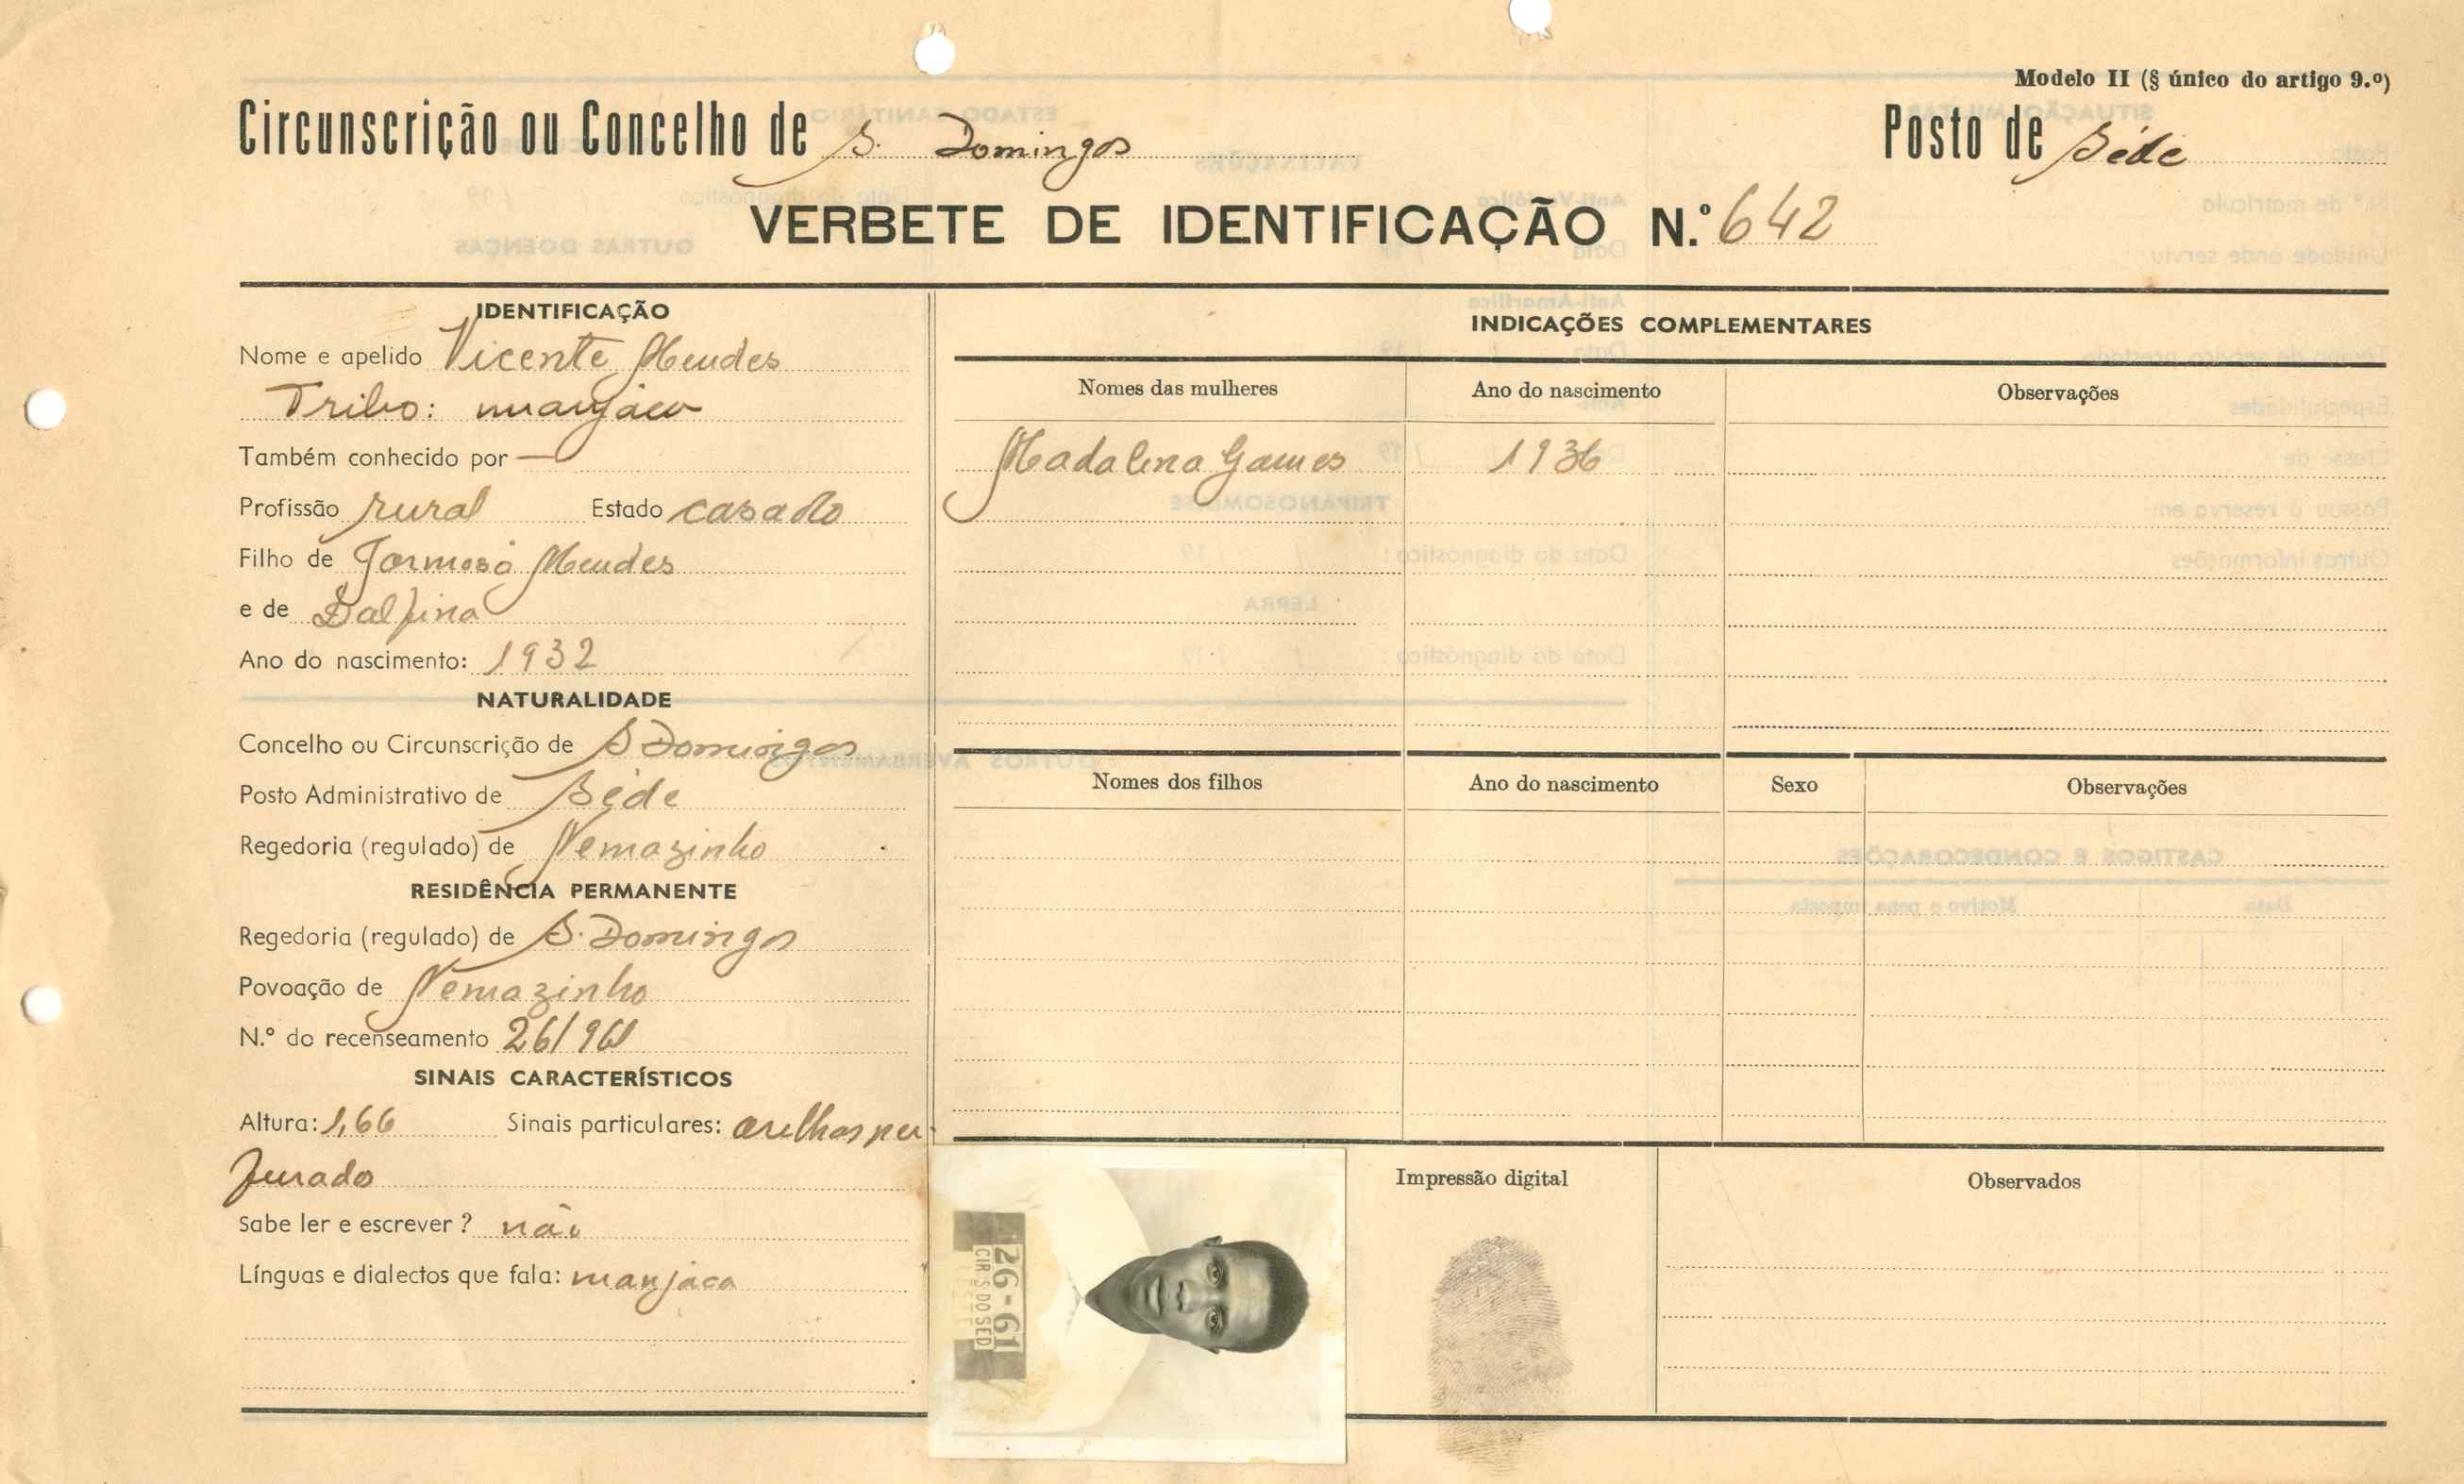 Modelo II (§ único do artigo 9.º)
Circunscrição ou Concelho de S. Domingos Posto de Séde
VERBETE DE IDENTIFICAÇÃO N.º 642
IDENTIFICAÇÃO
Nome e apelido Vicente Mendes
Tribo: manjaco
Também conhecido por —
Profissão rural Estado casado
Filho de Formoso Mendes
e de Dalfina
Ano do nascimento: 1932
NATURALIDADE
Concelho ou Circunscrição de S Domingos
Posto Administrativo de Séde
Regedoria (regulado) de Nemazinho
RESIDÊNCIA PERMANENTE
Regedoria (regulado) de S. Domingos
Povoação de Nemazinho
N.º do recenseamento 26/961
SINAIS CARACTERÍSTICOS
Altura: 1,66 Sinais particulares: orelhas per
furado
Sabe ler e escrever? não
Línguas e dialectos que fala: manjaca
INDICAÇÕES COMPLEMENTARES
Nomes das mulheres Ano do nascimento Observações
Madalena Gomes 1936
Nomes dos filhos Ano do nascimento Sexo Observações
26-61
CIR S DO SED
Impressão digital
Observados